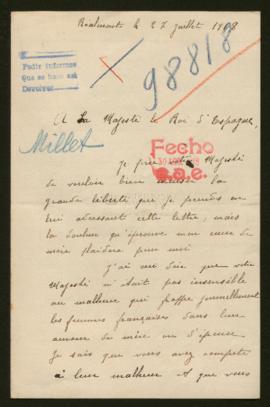 Realmont le 27 juillet 1918
Pedir informes
Que se haga acá
Devolver
98818
A Sa Majesté le Roi d'Espagne,
Millet
Fecho
30 1918
s.o.e.
Je prie votre Majesté
de vouloir bien excuser la
grande liberté que je prends en
lui adressant cette lettre, mais
la douleur qu'éprouve mon cœur de
mère plaidera pour moi
J'ai ouï dire que votre
Majesté n'était pas insensible
au malheur qui frappe journellement
les femmes françaises dans leur
amour de mère ou d'épouse
Je sais que vous avez compati
à leur malheur et que vous